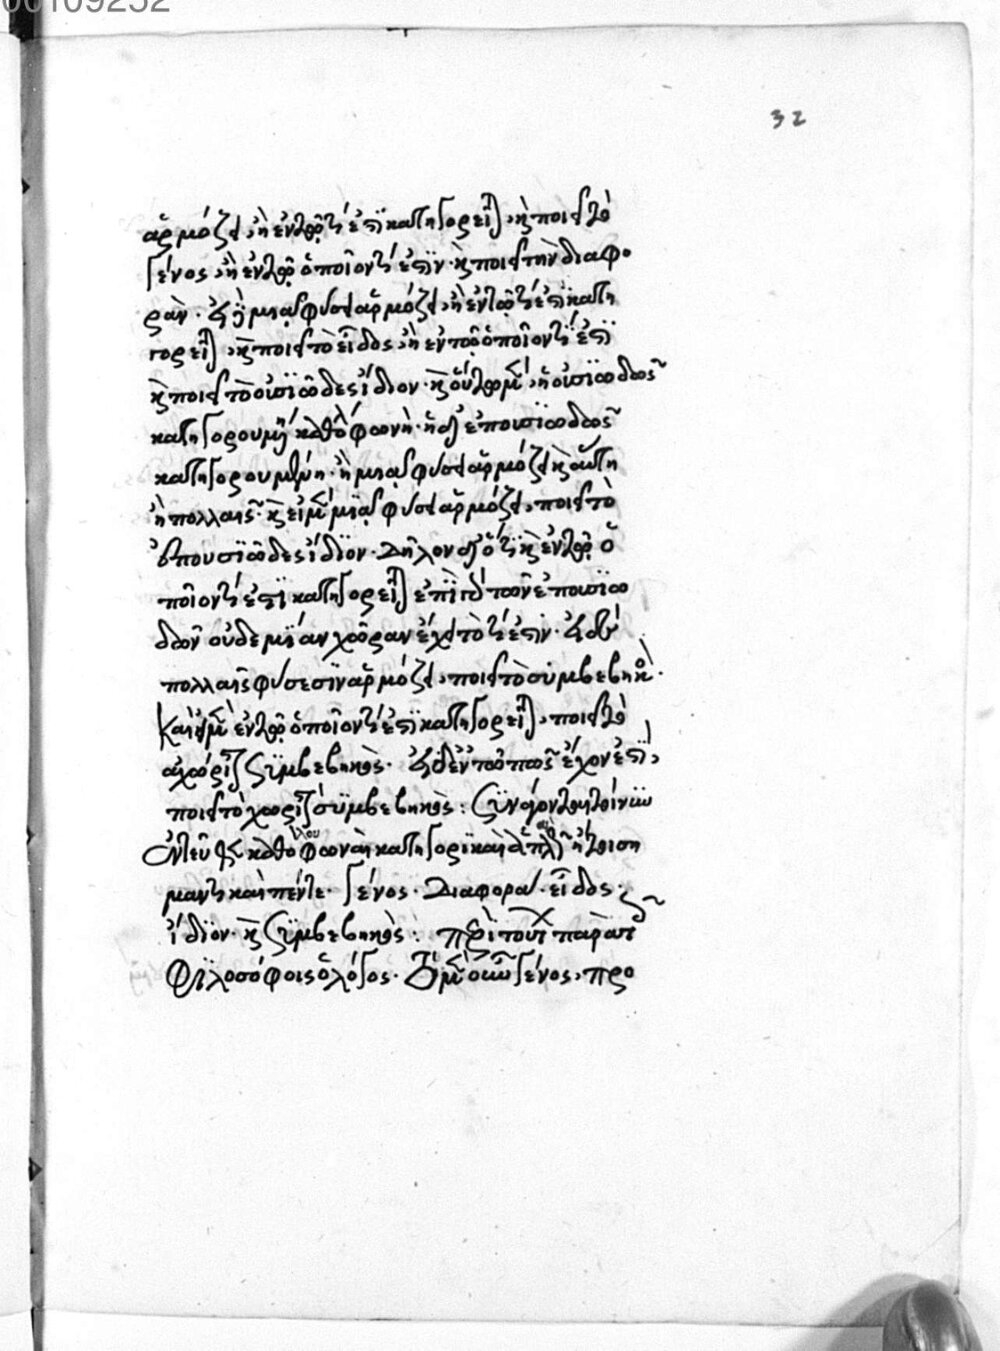 00109252
32
ἁρμόζει, ἢ ἐν τῷ τί ἐστι κατηγορεῖται, ἢ ποιεῖ τὸ
γένος, ἢ ἐν τῷ ὁποῖον τί ἐστιν· καὶ ποιεῖ τὴν διαφο
ράν· εἰ δὲ μιᾷ φύσει ἁρμόζει, ἢ ἐν τῷ τί ἐστι κατη
γορεῖται, καὶ ποιεῖ τὸ εἶδος, ἢ ἐν τῷ ὁποῖον τί ἐστι
καὶ ποιεῖ τὸ οὐσιῶδες ἴδιον· καὶ οὕτω μὲν, ἡ οὐσιωδῶς
κατηγορουμένη καθόλου φωνή· ἡ δὲ ἐπουσιωδῶς
κατηγορουμένη· ἢ μιᾷ φύσει ἁρμόζει καὶ αὕτη
ἢ πολλαῖς· καὶ εἰ μὲν μιᾷ φύσει ἁρμόζει, ποιεῖ τὸ
ἐπουσιῶδες ἴδιον· δῆλον δὲ ὅτι καὶ ἐν τῷ ὁ
ποῖον τί ἐστι κατηγορεῖται ἐπειδὴ ἐπὶ τῶν ἐπουσιω
δῶν οὐδεμίαν χώραν ἔχει τὸ τί ἐστιν· εἰ δὲ
πολλαῖς φύσεσιν ἁρμόζει, ποιεῖ τὸ συμβεβηκὸς·
καὶ εἰ μὲν ἐν τῷ ὁποῖον τί ἐστι κατηγορεῖται, ποιεῖ τὸ
ἀχώριστον συμβεβηκός· εἰ δὲ ἐν τῷ πῶς ἔχον ἐστί,
ποιεῖ τὸ χωριστὸν συμβεβηκός: συνάγονται τοίνυν
ἐντεῦθεν καθόλου φωναὶ κατηγορικαὶ ἁπλαῖ ἤτοι ση
μαντικαὶ πέντε· γένος· διαφορά· εἶδος·
ἴδιον· καὶ συμβεβηκός: περὶ τούτων παρὰ τοῖς
φιλοσόφοις ὁ λόγος· τὸ μὲν οὖν γένος, προ